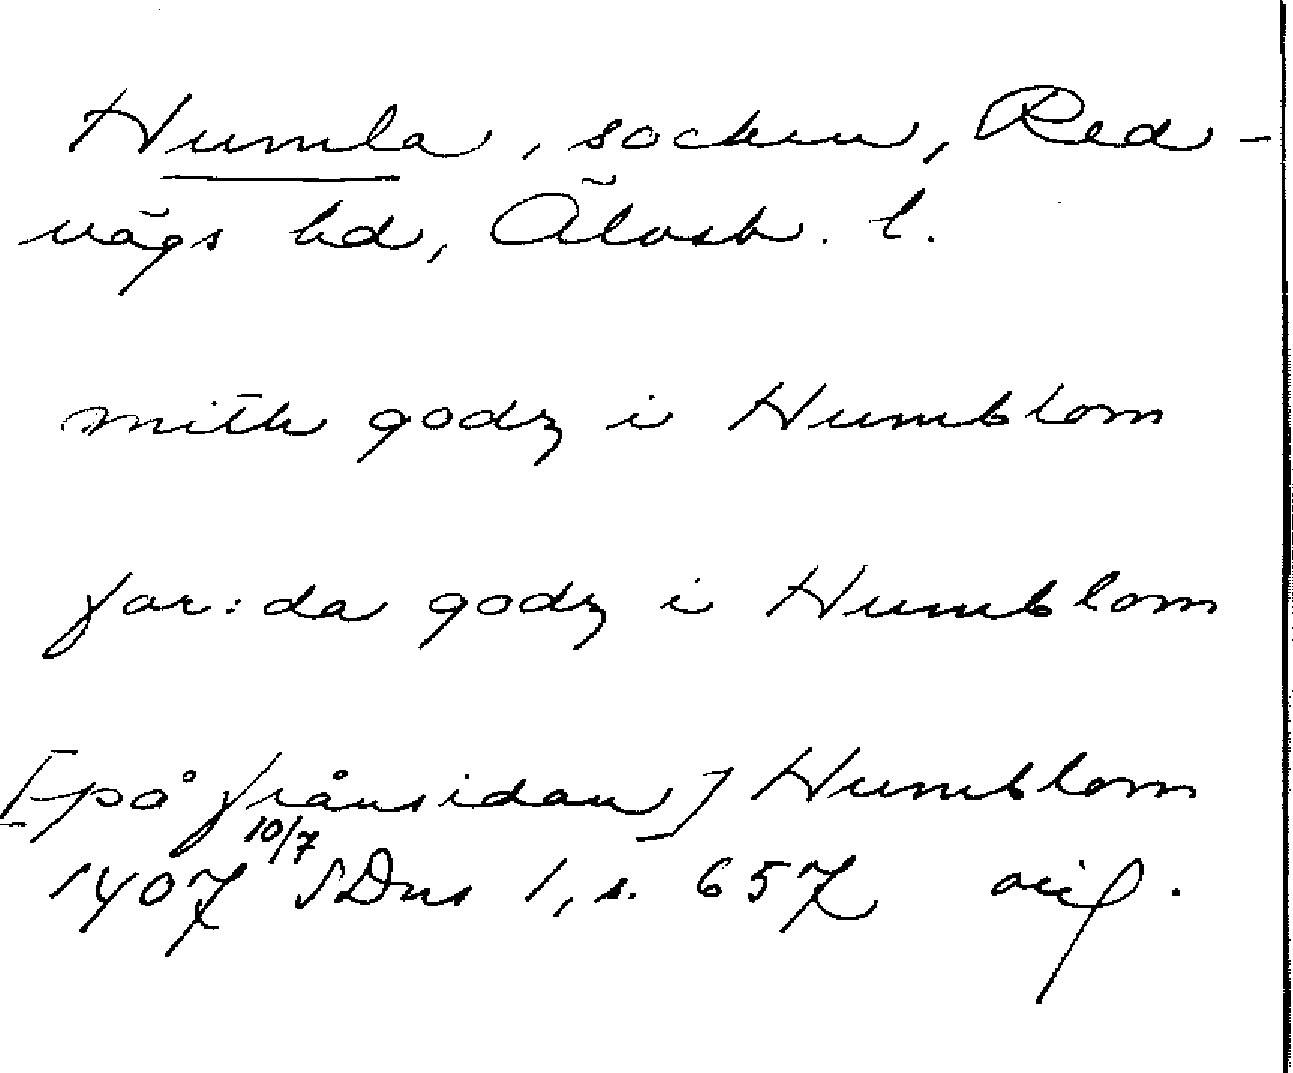 Humla, socken, Red-
vägs hd, Älvsb. l.
mith godz i Humblom
for:da godz i Humblom
[på frånsidan] Humblom
1407 10/7 SDns 1, s. 657 oif.